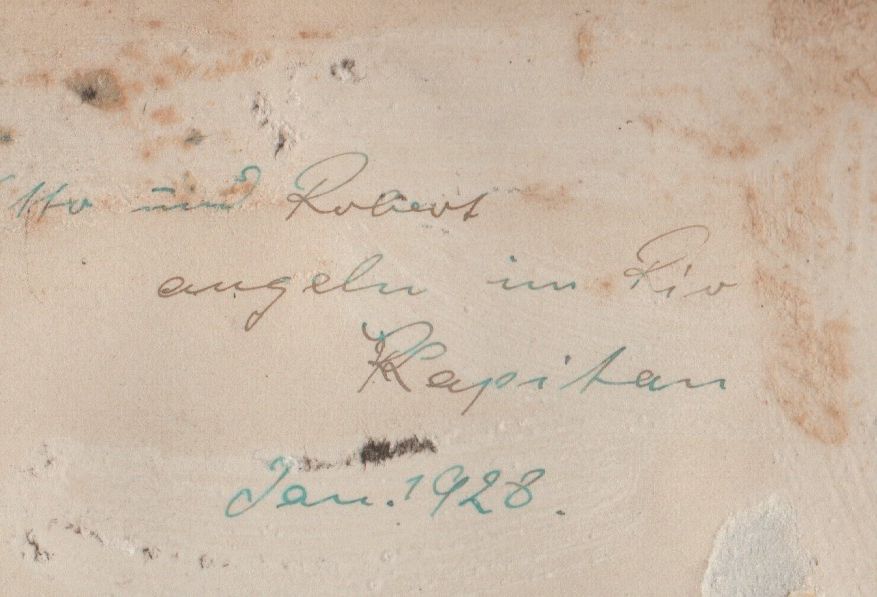 Otto und Robert
angeln im Rio
Kapitan
Jan. 1928.